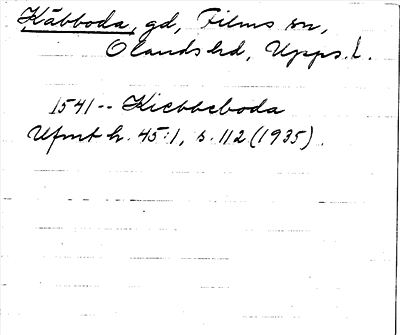 Käbboda, gd, Films sn,
Olands hd, Upps. l.
1541 -- Kiebbeboda
Ufmt h. 45:1, s. 112 (1935).